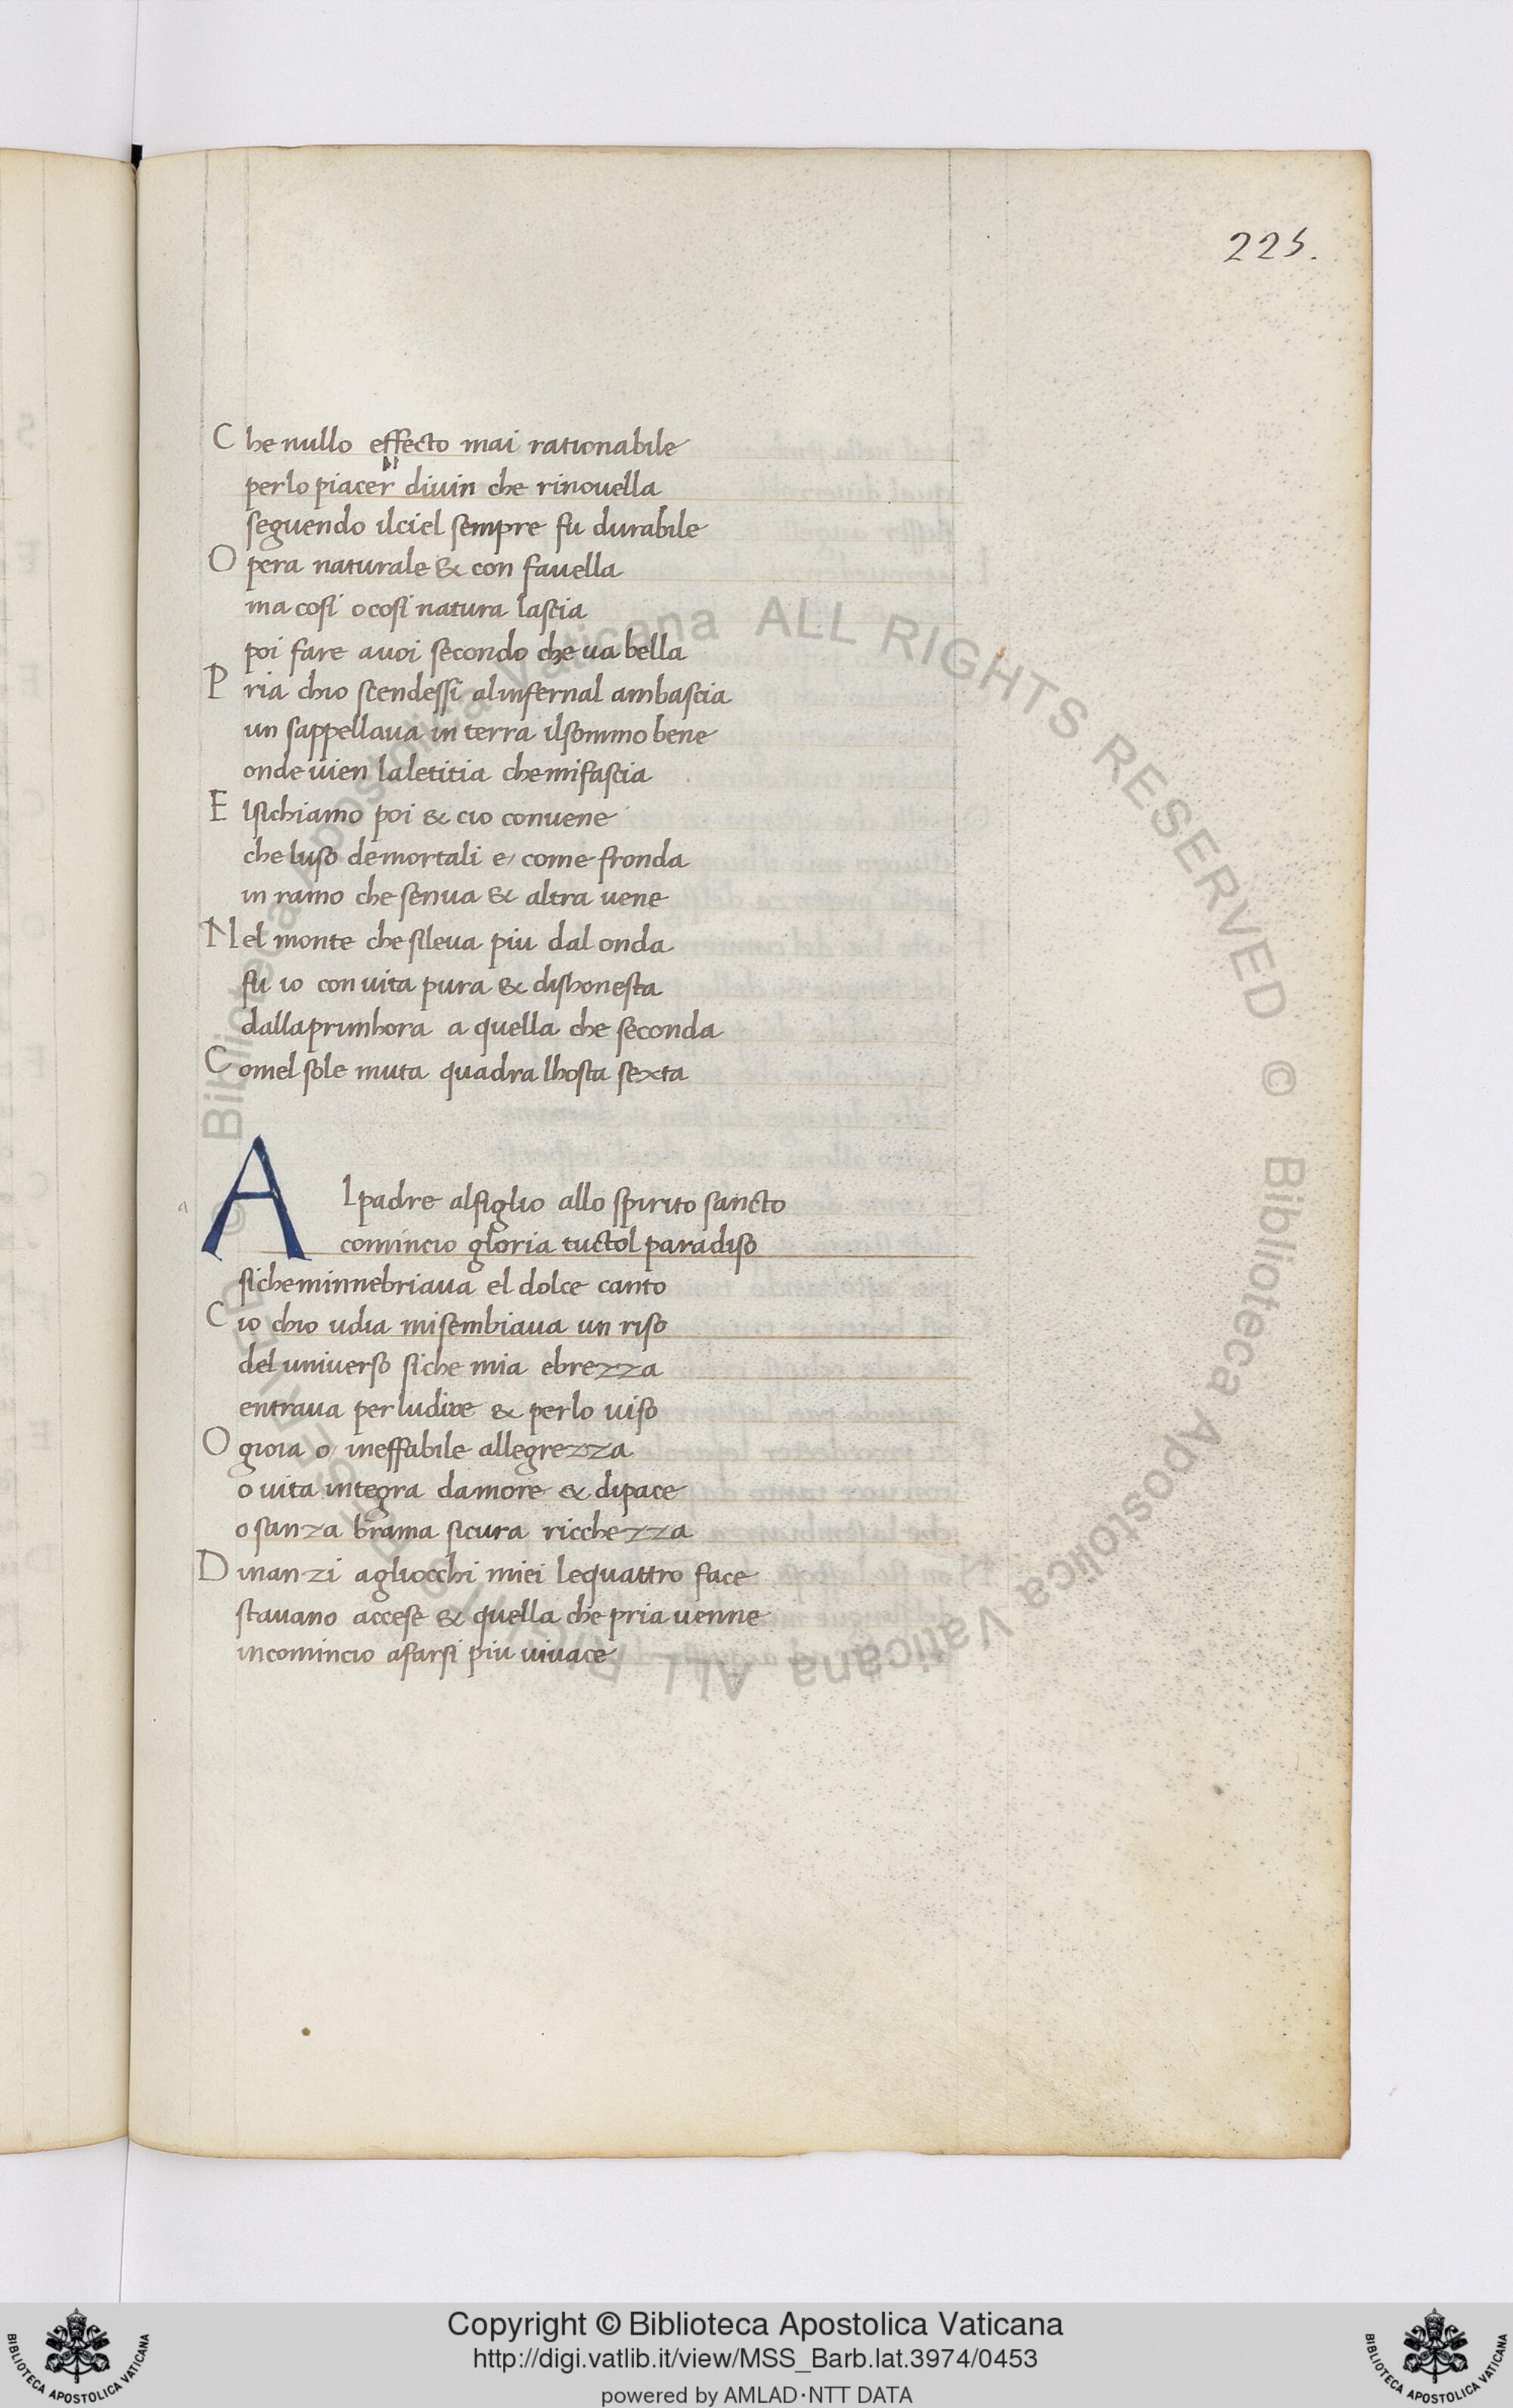 225.
C he nullo effecto mai rationabile
per lo piacer divin che rinovella
seguendo ilciel sempre fu durabile
O pera naturale & con favella
ma cosi o cosi natura lascia
poi fare avoi secondo che va bella
P ria chio scendessi alinfernal ambascia
un sappellava in terra ilsommo bene
onde vien laletitia chemifascia
E lsichiamo poi & cio convene
che luso demortali e come fronda
in ramo che senva & altra vene
N el monte che sileva piu dal onda
fu io con vita pura & dishonesta
dallaprimhora a quella che seconda
C omel sole muta quadra lhosta sexta
A lpadre alfiglio allo spirito sancto
comincio gloria tuctol paradiso
sicheminnebriava el dolce canto
C io chio udia misembiava un riso
del universo siche mia ebrezza
entrava per ludire & perlo viso
O gioia o ineffabile allegrezza
o vita integra damore & dipace
o sanza brama sicura ricchezza
D inanzi agliocchi miei lequattro face
stavano accese & quella che pria venne
incomincio afarsi piu vivace
Copyright © Biblioteca Apostolica Vaticana
http://digi.vatlib.it/view/MSS_Barb.lat.3974/0453
powered by AMLAD·NTT DATA
© Biblioteca Apostolica Vaticana ALL RIGHTS RESERVED © Biblioteca Apostolica Vaticana ALL RIGHTS RESERVED
BIBLIOTECA APOSTOLICA VATICANA
BIBLIOTECA APOSTOLICA VATICANA